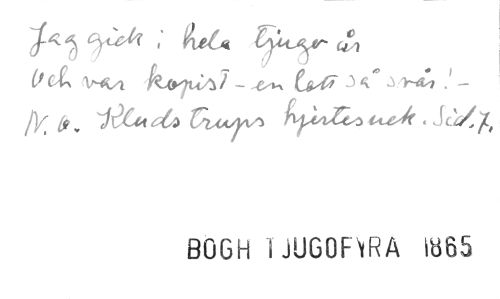 Jag gick i hela tjugo år
och var kopist – en lott så svår! –
N. o. Kludstrups hjertesuck. Sid. 7.
BOGH TJUGOFYRA 1865